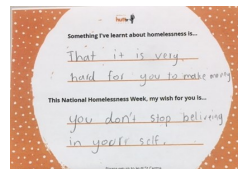 Something I've learnt about homelessness is...
That it is very
hard for you to make money
This National Homelessness Week, my wish for you is...
you don't stop believing
in yours self.